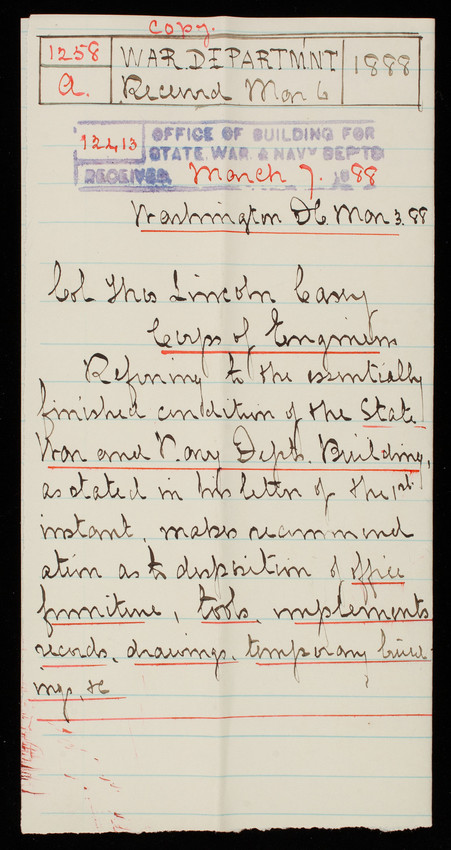 Copy.
1258 WAR DEPARTMNT 1888
A. Received Mar 6
12413 OFFICE OF BUILDING FOR
STATE, WAR, & NAVY DEPTS
RECEIVED March 7. 1888
Washington DC. Mar 3. 88
Col Thos Lincoln Casey
Corps of Engineers
Refering to the essentially
finished condition of the State
War and Navy Depts. Building,
as stated in his letter of the 1st
instant, makes recommend
ation as to disposition of office
furniture, tools, implements
records, drawings, temporary build-
ings, &c